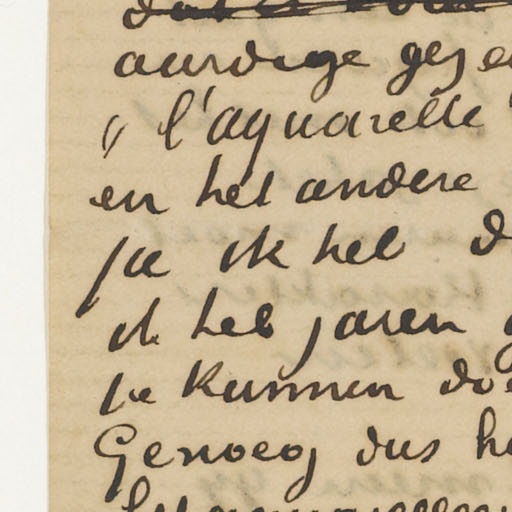 aardige geze
„ l'aquarelle
en het andere
ja ik heb d
ik heb jaren g
te kunnen do
Genoeg dus h